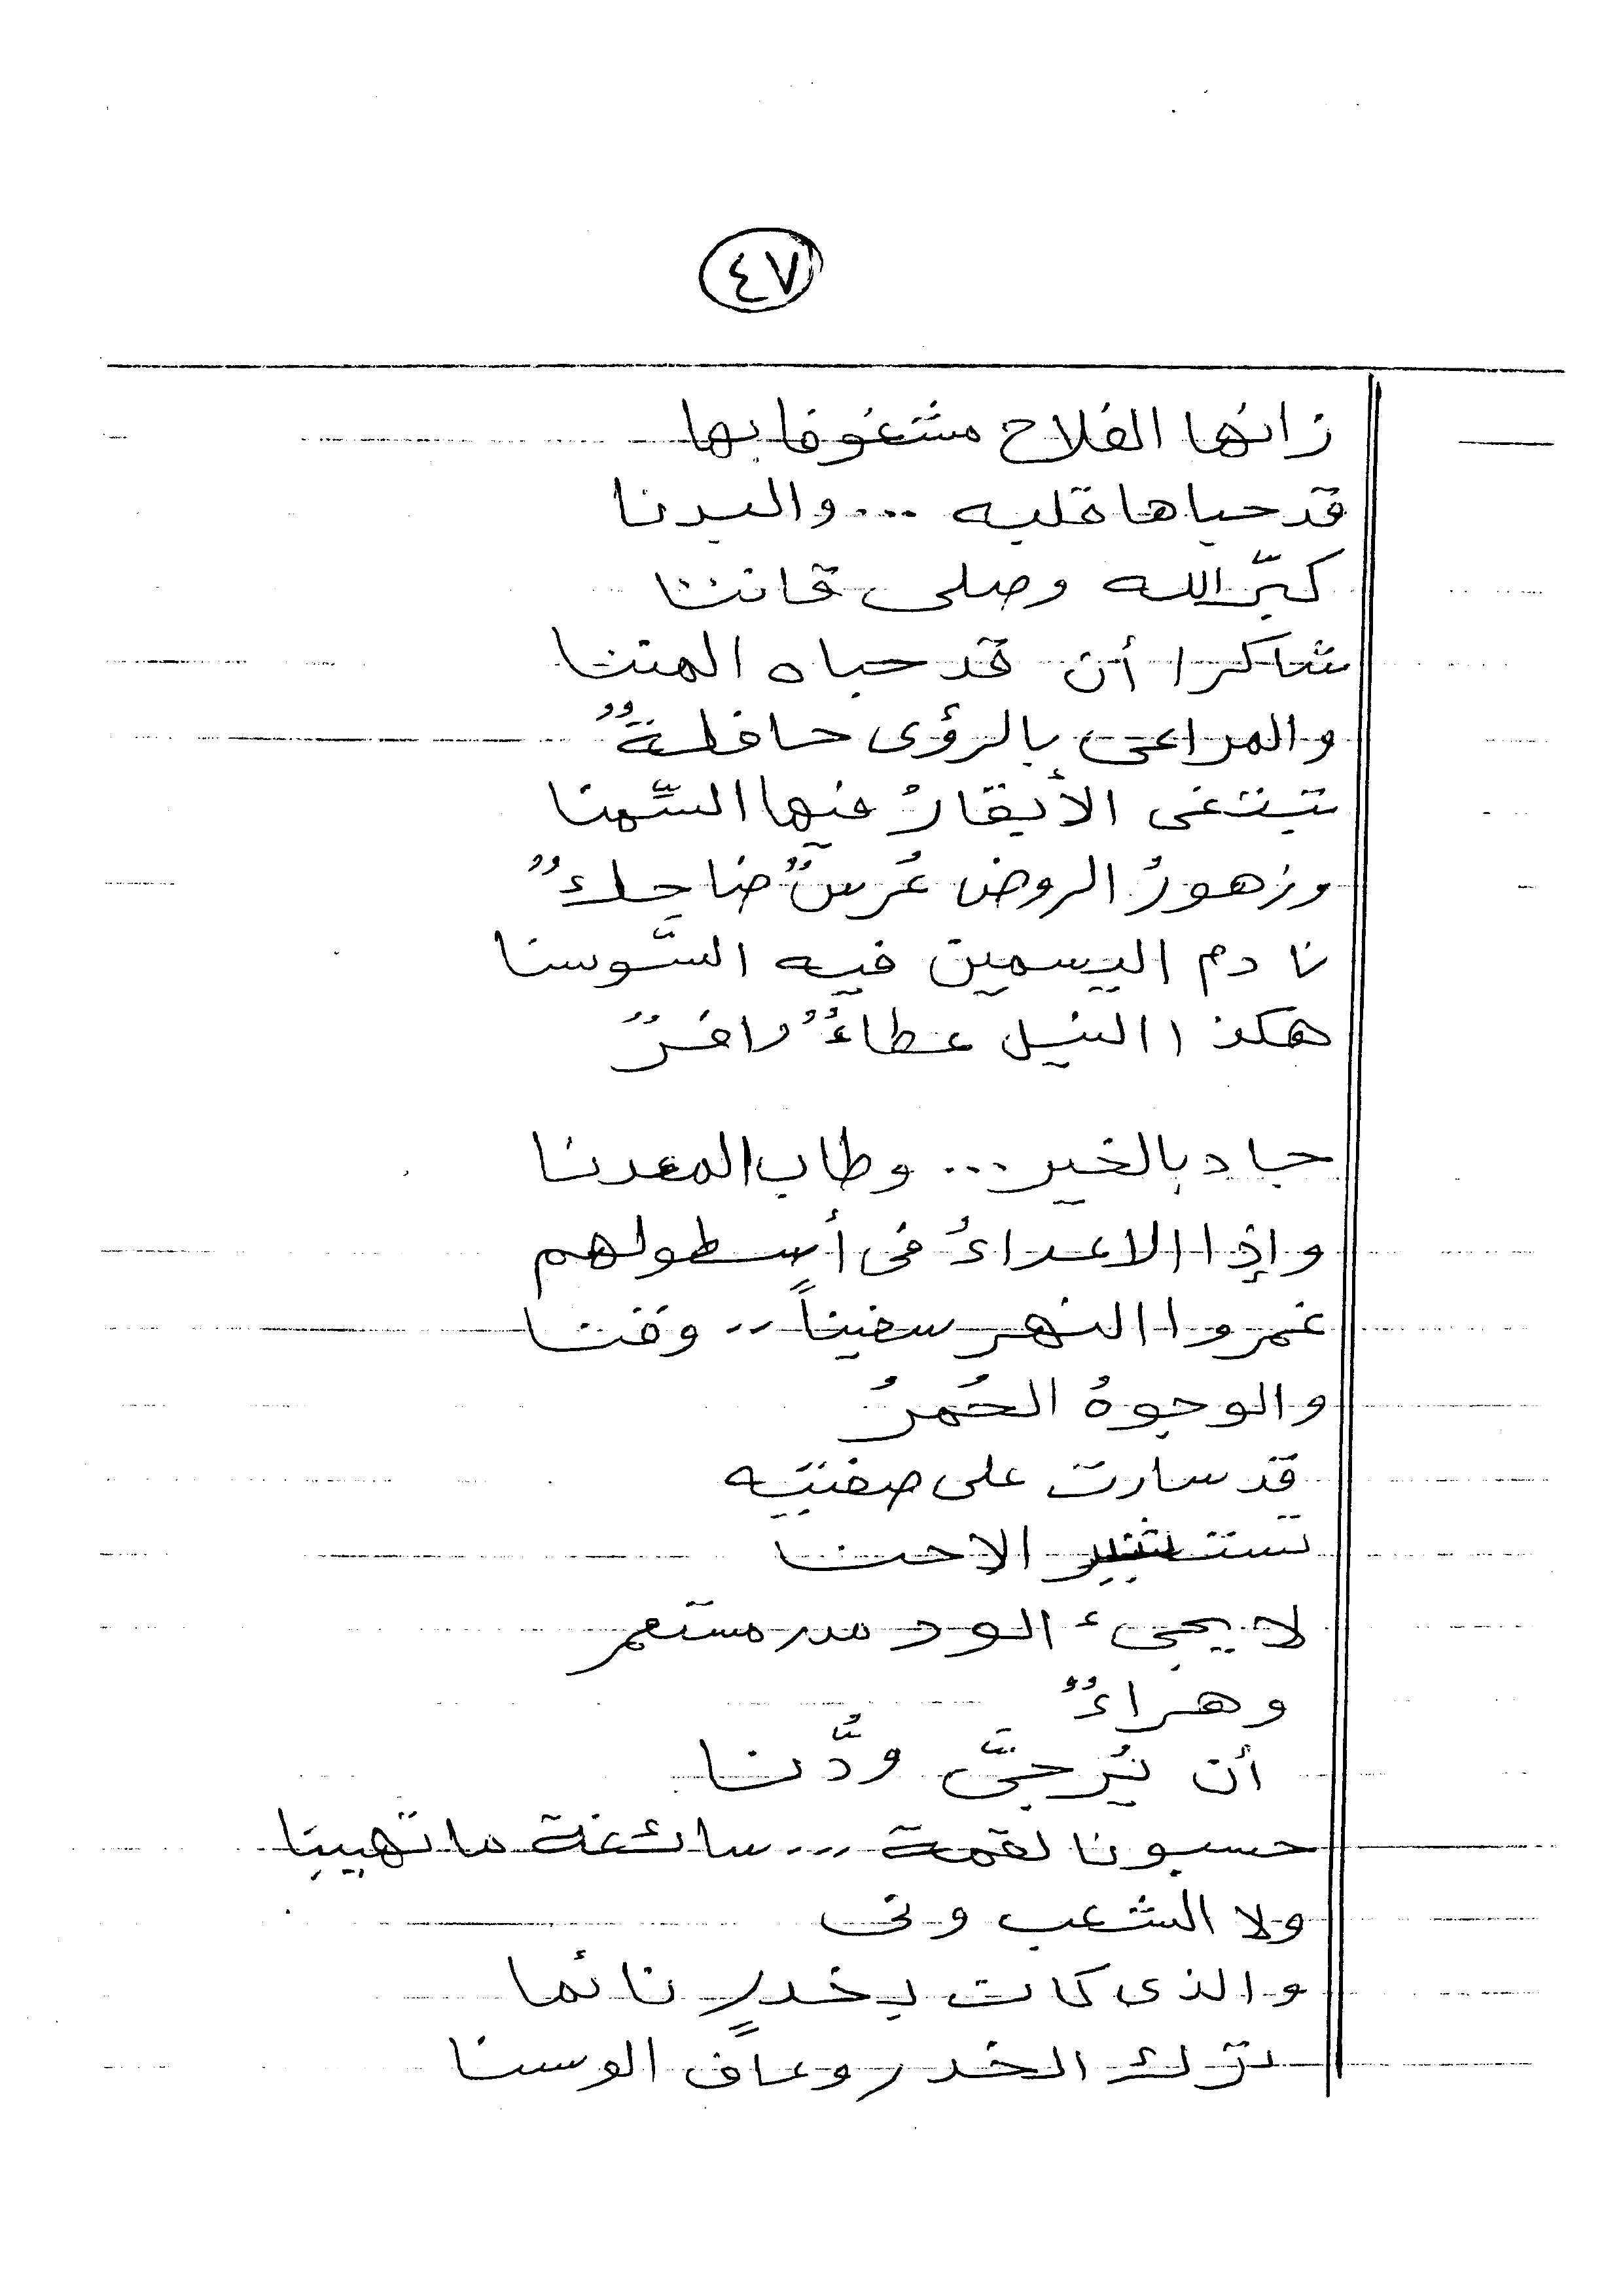 ٤٧
زانها الفلاح مشغوفا بها
قد حباها قلبه ... والبدنا
كبّر الله وصلى قانتا
شاكرا أن قد حباه المننا
والمراعى بالرؤى حافلةٌ
تبتغى الأبقارُ فيها السِّمنا
وزهورُ الروض عُرسٌ ضاحِكٌ
نادم اليسمين فيه السَّوسنا
هكذا النيل عطاءٌ وافرٌ
جاد بالخير ... وطاب المعدنا
وإذا الاعداءُ فى أسطولهم
غمروا النهر سفيناً .. وقنا
والوجوهُ الحُمرُ
قد سارت على ضفتيه
تستثير الاحنا
لا يجىء الود من مستعمر
وهراءٌ
أن يُرجىَّ ودُّنا
حسبونا لقمة ... سائغة ما تهيبنا
ولا الشعب ونى
والذى كان بخدرٍ نائما
ترك الخدر وعاف الوسنا